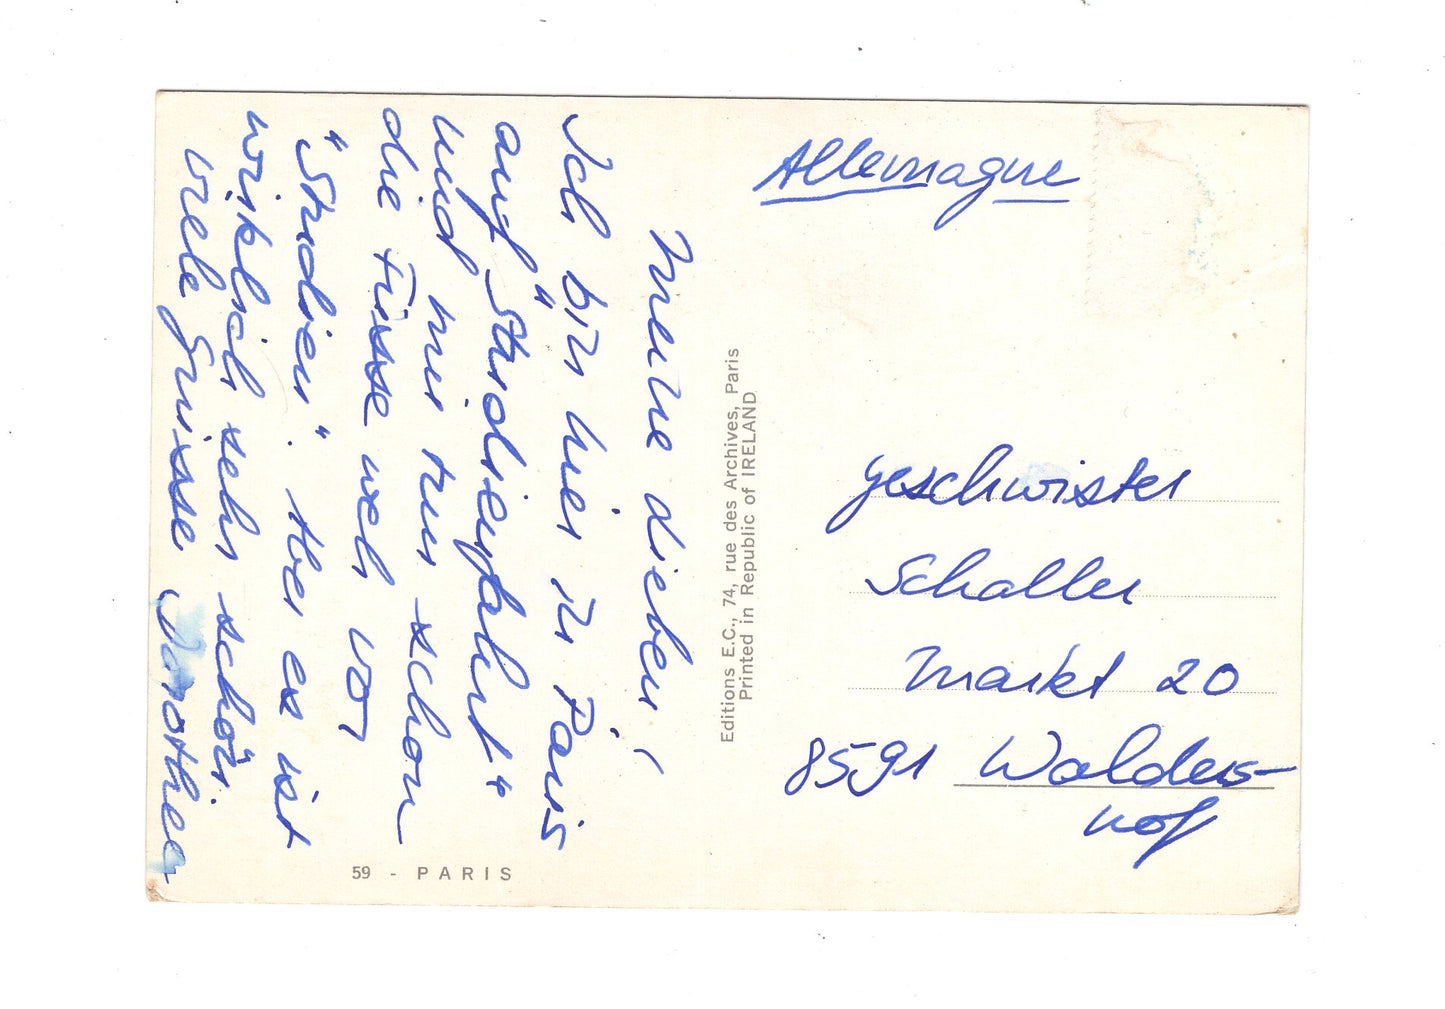 Meine Lieben!
Ich bin hier in Paris
auf "Studienfahrt"
und mir tun schon
die Füsse weh vor
"Studien". Aber es ist
wirklich sehr schön.
Viele Grüsse Dorothea
Editions E.C., 74, rue des Archives, Paris
Printed in Republic of IRELAND
59 - PARIS
Allemagne
Geschwister
Schaller
Markt 20
8591 Walders-
hof